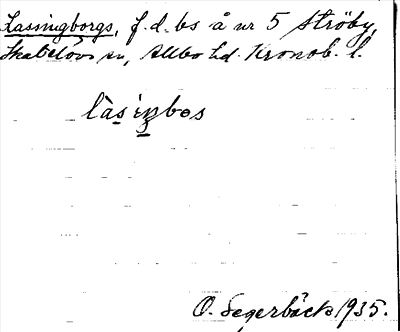 Lassingborgs, f.d. bs å nr 5 Ströby,
Skatelövs sn, Allbo hd. Kronob. l.
làsiŋbɷs
O. Segerbäck 1935.